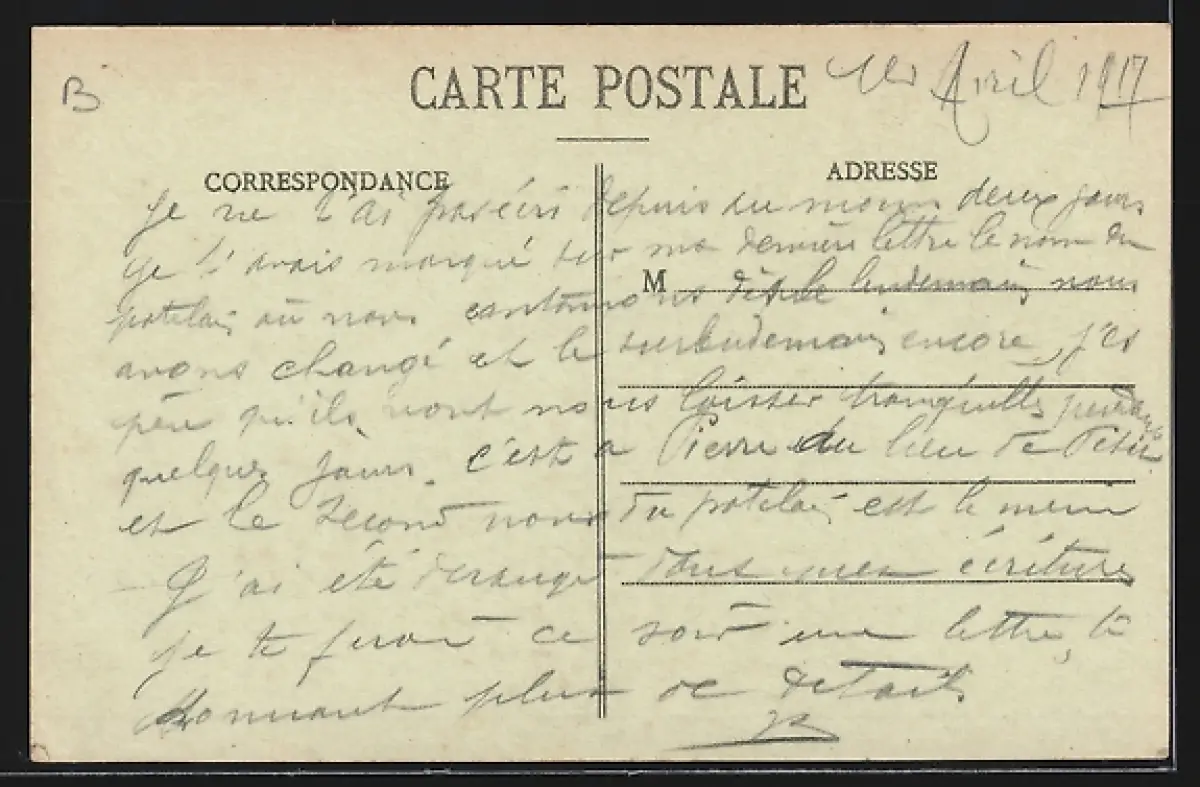 B
CARTE POSTALE
1er Avril 1917
CORRESPONDANCE
ADRESSE
M
Je ne t'ai pas écris depuis au moins deux jours
je t'avais marqué sur ma dernière lettre le nom du
patelain où nous cantonnons dès le lendemain nous
avons changé et le surlendemain encore, j'es
père qu'ils vont nous laisser tranquilles pendant
quelques jours. c'est a Pierre au lieu de Petit
et le second nom du patelain est le meme
J'ai été derangé dans mes écritures
je te ferai ce soir une lettre, te
donnant plus de details